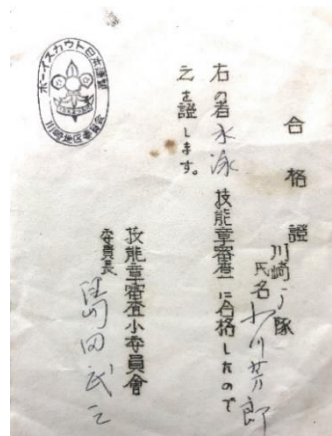 合格證
川崎 隊
氏名 川芳郎
右の者水泳技能章審査に合格したので
之を證します。
技能章審査小委員會
委員長 田武
ボーイスカウト日本連盟
川崎地区委員会